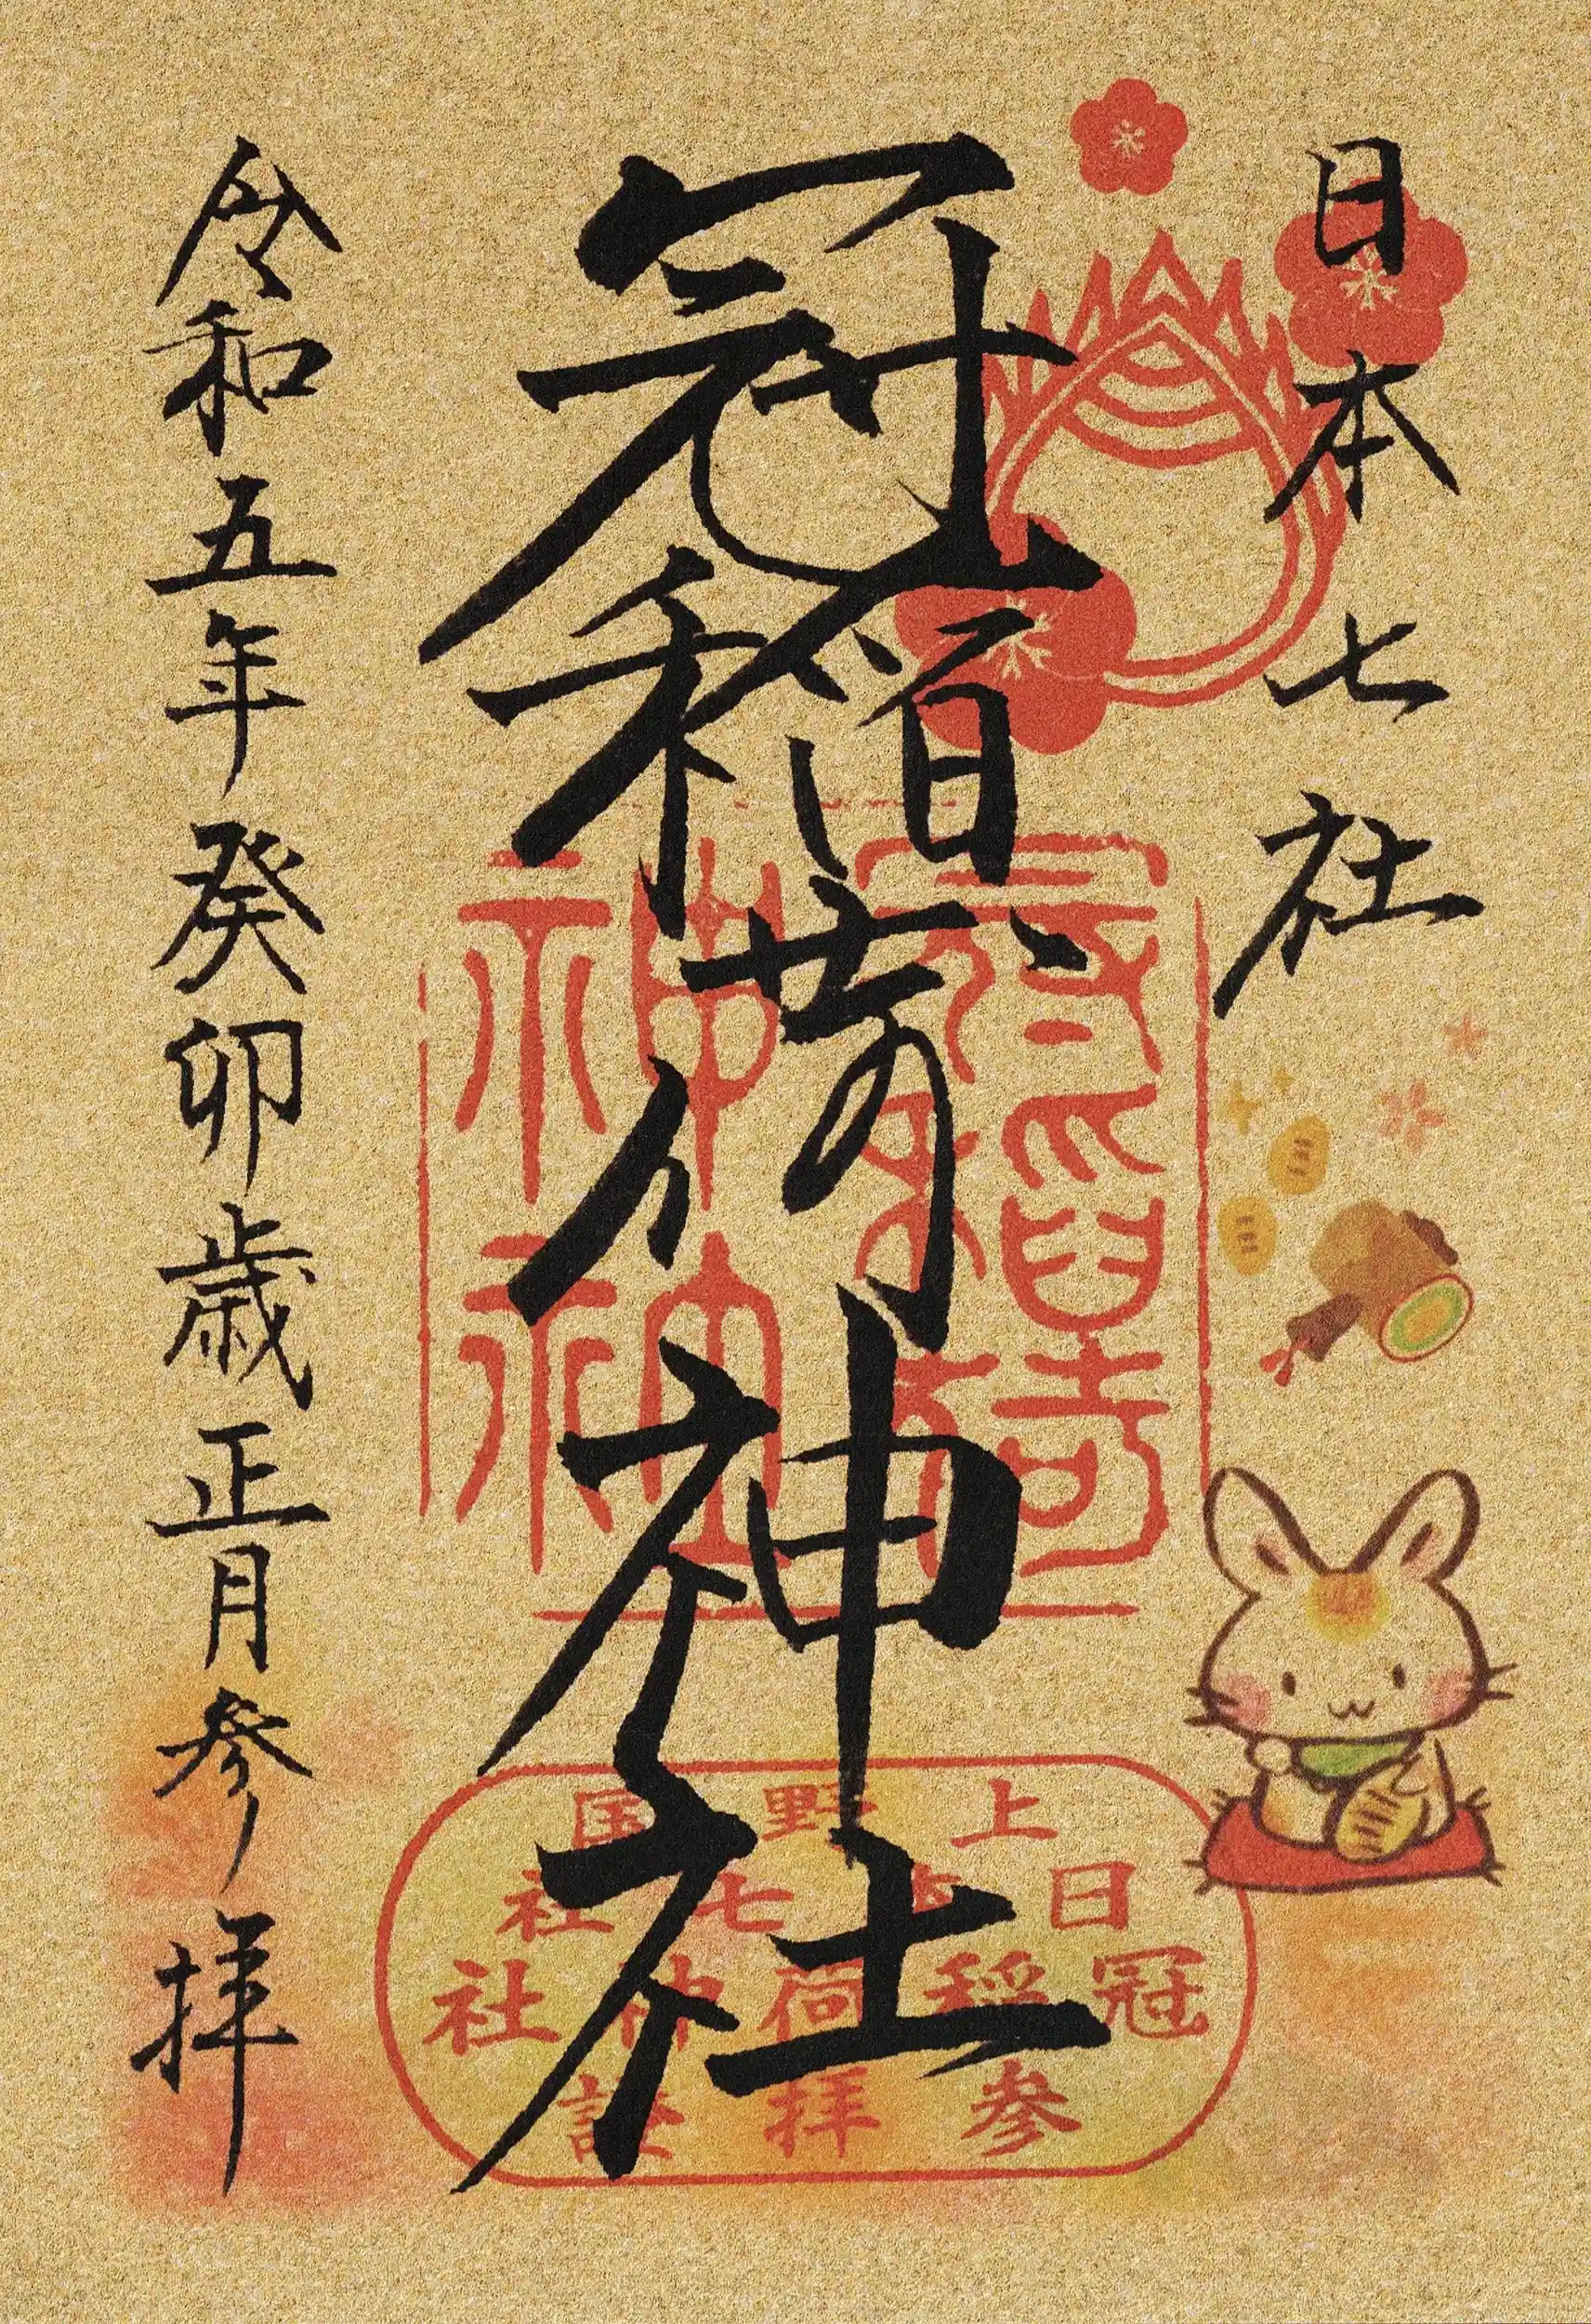 日本七社
冠稲荷神社
令和五年癸卯歳正月参拝
冠稲荷神社
上野国
日本七社
冠稲荷神社
参拝證